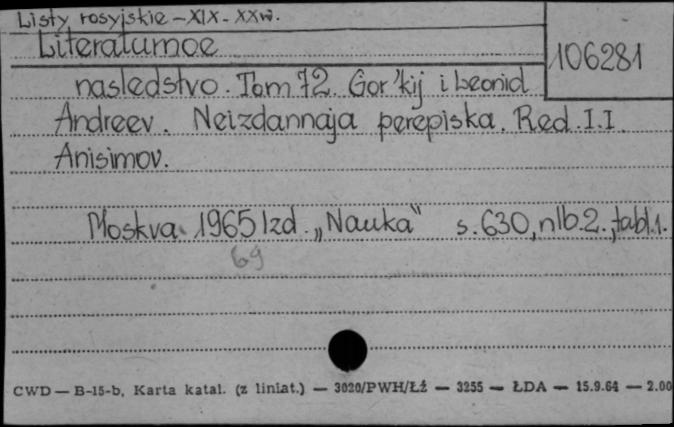 Listy rosyjskie - XIX - XXw.
Literaturnoe
106281
nasledstvo. Tom 72. Gor'kij i Leonid
Andreev. Neizdannaja perepiska. Red. I.I.
Anisimov.
Moskva. 1965 Izd. „Nauka" s. 630, nlb. 2., tabl. 1.
69
CWD — B-15-b, Karta katal. (z liniat.) — 3020/PWH/Łź — 3255 — ŁDA — 15.9.64 — 2.00